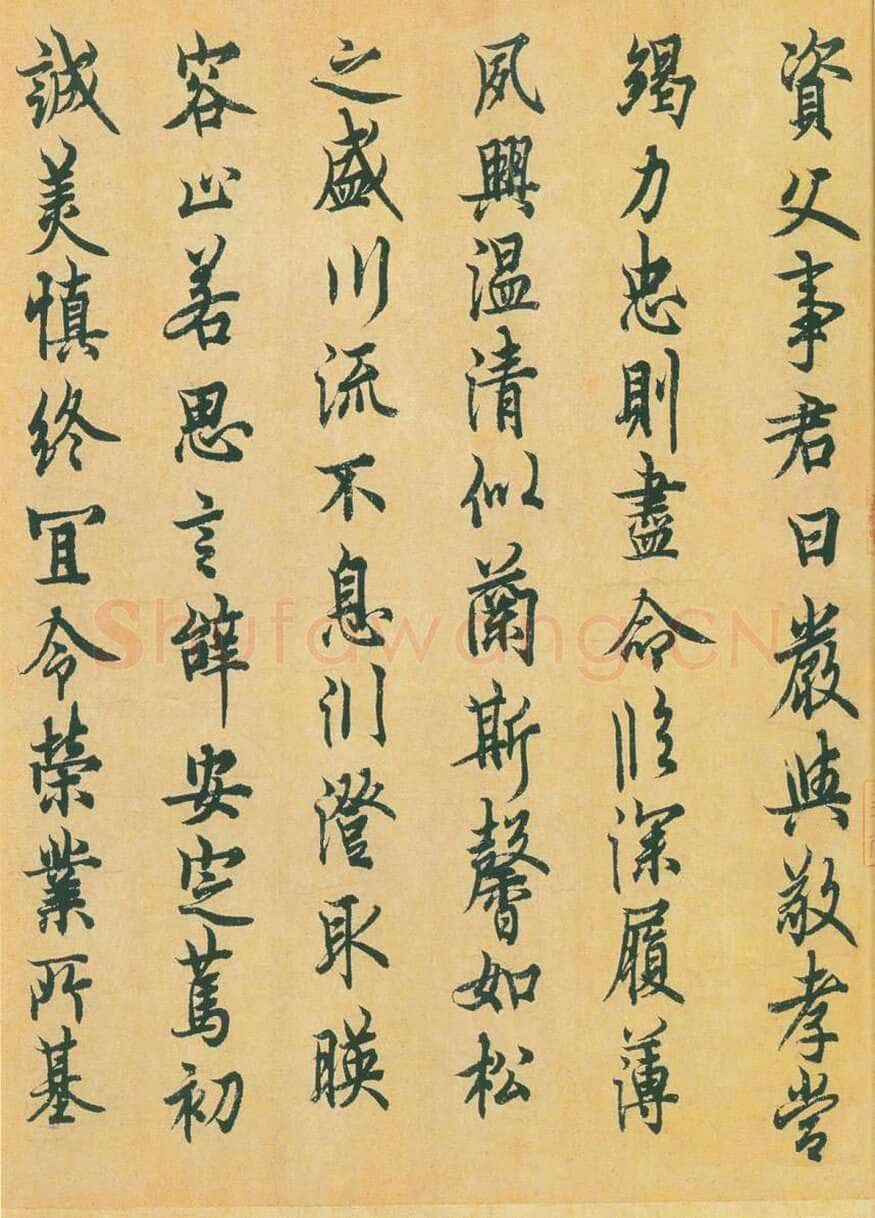 資父事君曰嚴與敬孝當
竭力忠則盡命臨深履薄
夙興温清似蘭斯馨如松
之盛川流不息川澄取暎
容止若思言辭安定篤初
誠美慎終宜令榮業所基
Shufawang.CN